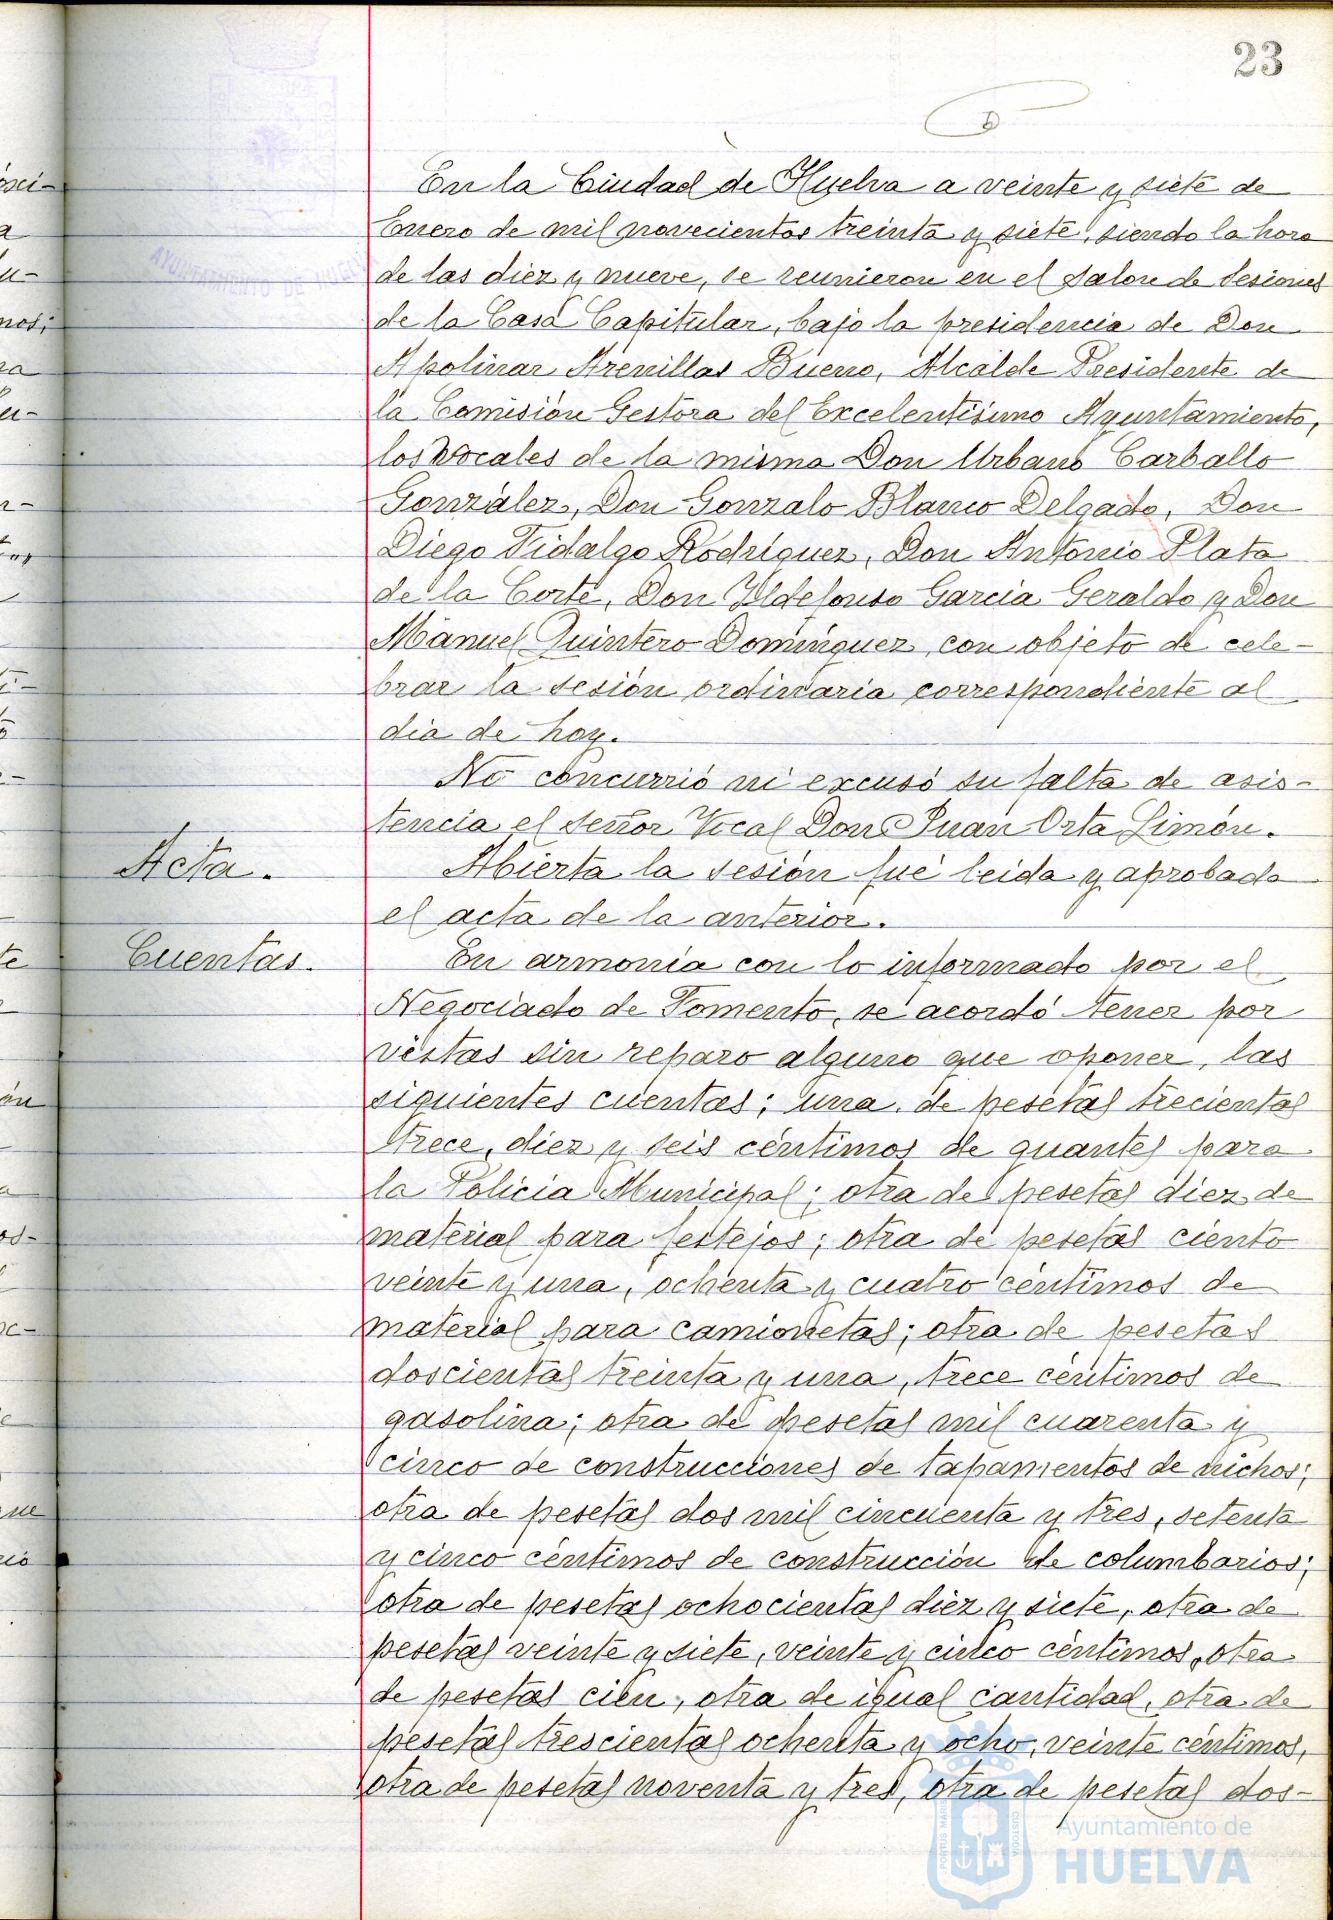 23
En la Ciudad de Huelva a veinte y siete de
Enero de mil novecientos treinta y siete, siendo la hora
de las diez y nueve, se reunieron en el Salon de Sesiones
de la Casa Capitular, bajo la presidencia de Don
Apolinar Arenillas Bueno, Alcalde Presidente de
la Comisión Gestora del Excelentísimo Ayuntamiento,
los Vocales de la misma Don Urbano Carballo
González, Don Gonzalo Blanco Delgado, Don
Diego Fidalgo Rodríguez, Don Antonio Plata
de la Corte, Don Yldefonso García Geraldo y Don
Manuel Quintero Domínguez, con objeto de cele-
brar la sesión ordinaria correspondiente al
dia de hoy.
No concurrió ni excusó su falta de asis-
tencia el señor Vocal Don Juan Orta Limón.
Acta.
Abierta la sesión fué leida y aprobada
el acta de la anterior.
Cuentas.
En armonía con lo informado por el
Negociado de Fomento, se acordó tener por
vistas sin reparo alguno que oponer, las
siguientes cuentas; una de pesetas trecientas
trece, diez y seis céntimos de guantes para
la Policia Municipal; otra de pesetas diez de
material para festejos; otra de pesetas ciento
veinte y una, ochenta y cuatro céntimos de
material para camionetas; otra de pesetas
doscientas treinta y una, trece céntimos de
gasolina; otra de pesetas mil cuarenta y
cinco de construcciones de tapamentos de nichos;
otra de pesetas dos mil cincuenta y tres, setenta
y cinco céntimos de construcción de columbarios;
otra de pesetas ochocientas diez y siete, otra de
pesetas veinte y siete, veinte y cinco céntimos, otra
de pesetas cien, otra de igual cantidad, otra de
pesetas trescientas ochenta y ocho, veinte céntimos,
otra de pesetas noventa y tres, otra de pesetas dos-
AYUNTAMIENTO DE HUELVA
PORTUS MARIS
CUSTODIA
Ayuntamiento de
HUELVA